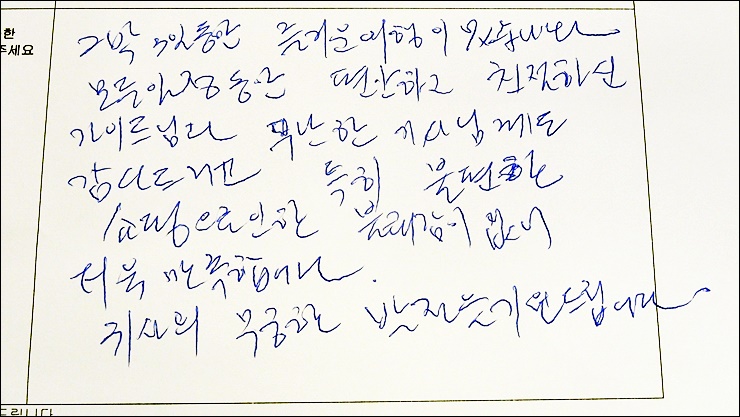 한
주세요
2박 3일 동안 즐거운 여행이 였습니다
모든 일정 동안 편안하고 친절하신
가이드님과 무난한 기사님께도
감사드리고 특히 불편한
쇼핑으로 인한 불쾌감이 없어
더욱 만족합니다.
귀사의 무궁한 발전을 기원드립니다.
드립니다